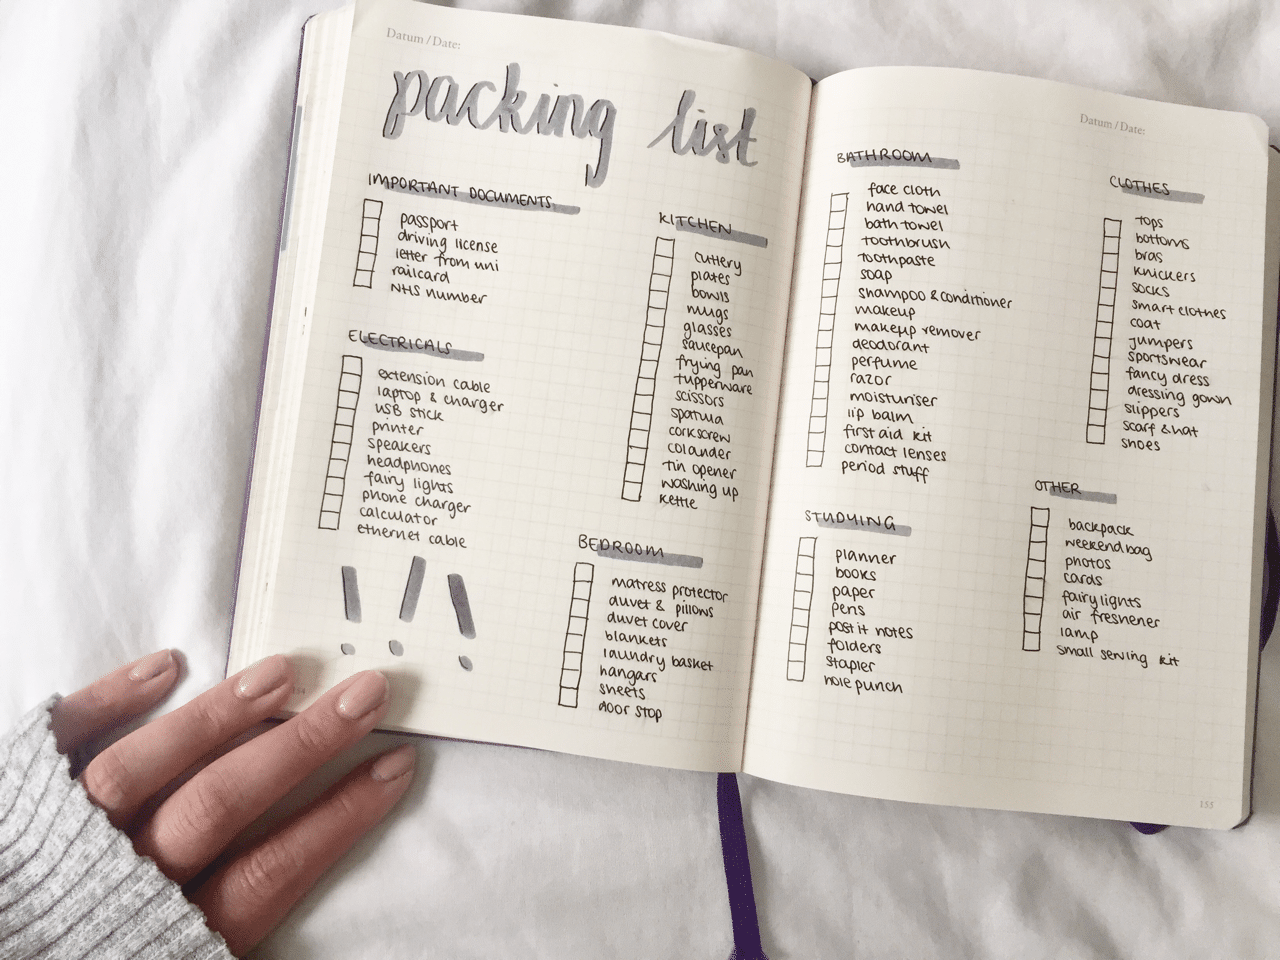 Datum / Date:
packing list
IMPORTANT DOCUMENTS
passport
driving license
letter from uni
railcard
NHS number
ELECTRICALS
extension cable
laptop & charger
USB stick
printer
speakers
headphones
fairy lights
phone charger
calculator
ethernet cable
! ! !
154
KITCHEN
cutlery
plates
bowls
mugs
glasses
saucepan
frying pan
tupperware
scissors
spatula
corkscrew
colander
tin opener
washing up
kettle
BEDROOM
matress protector
duvet & pillows
duvet cover
blankets
laundry basket
hangars
sheets
door stop
Datum / Date:
BATHROOM
face cloth
hand towel
bath towel
toothbrush
toothpaste
soap
shampoo & conditioner
makeup
makeup remover
deodorant
perfume
razor
moisturiser
lip balm
first aid kit
contact lenses
period stuff
STUDYING
planner
books
paper
pens
post it notes
folders
stapler
hole punch
CLOTHES
tops
bottoms
bras
knickers
socks
smart clothes
coat
jumpers
sportswear
fancy dress
dressing gown
slippers
scarf & hat
shoes
OTHER
backpack
weekend bag
photos
cards
fairy lights
air freshener
lamp
small sewing kit
155